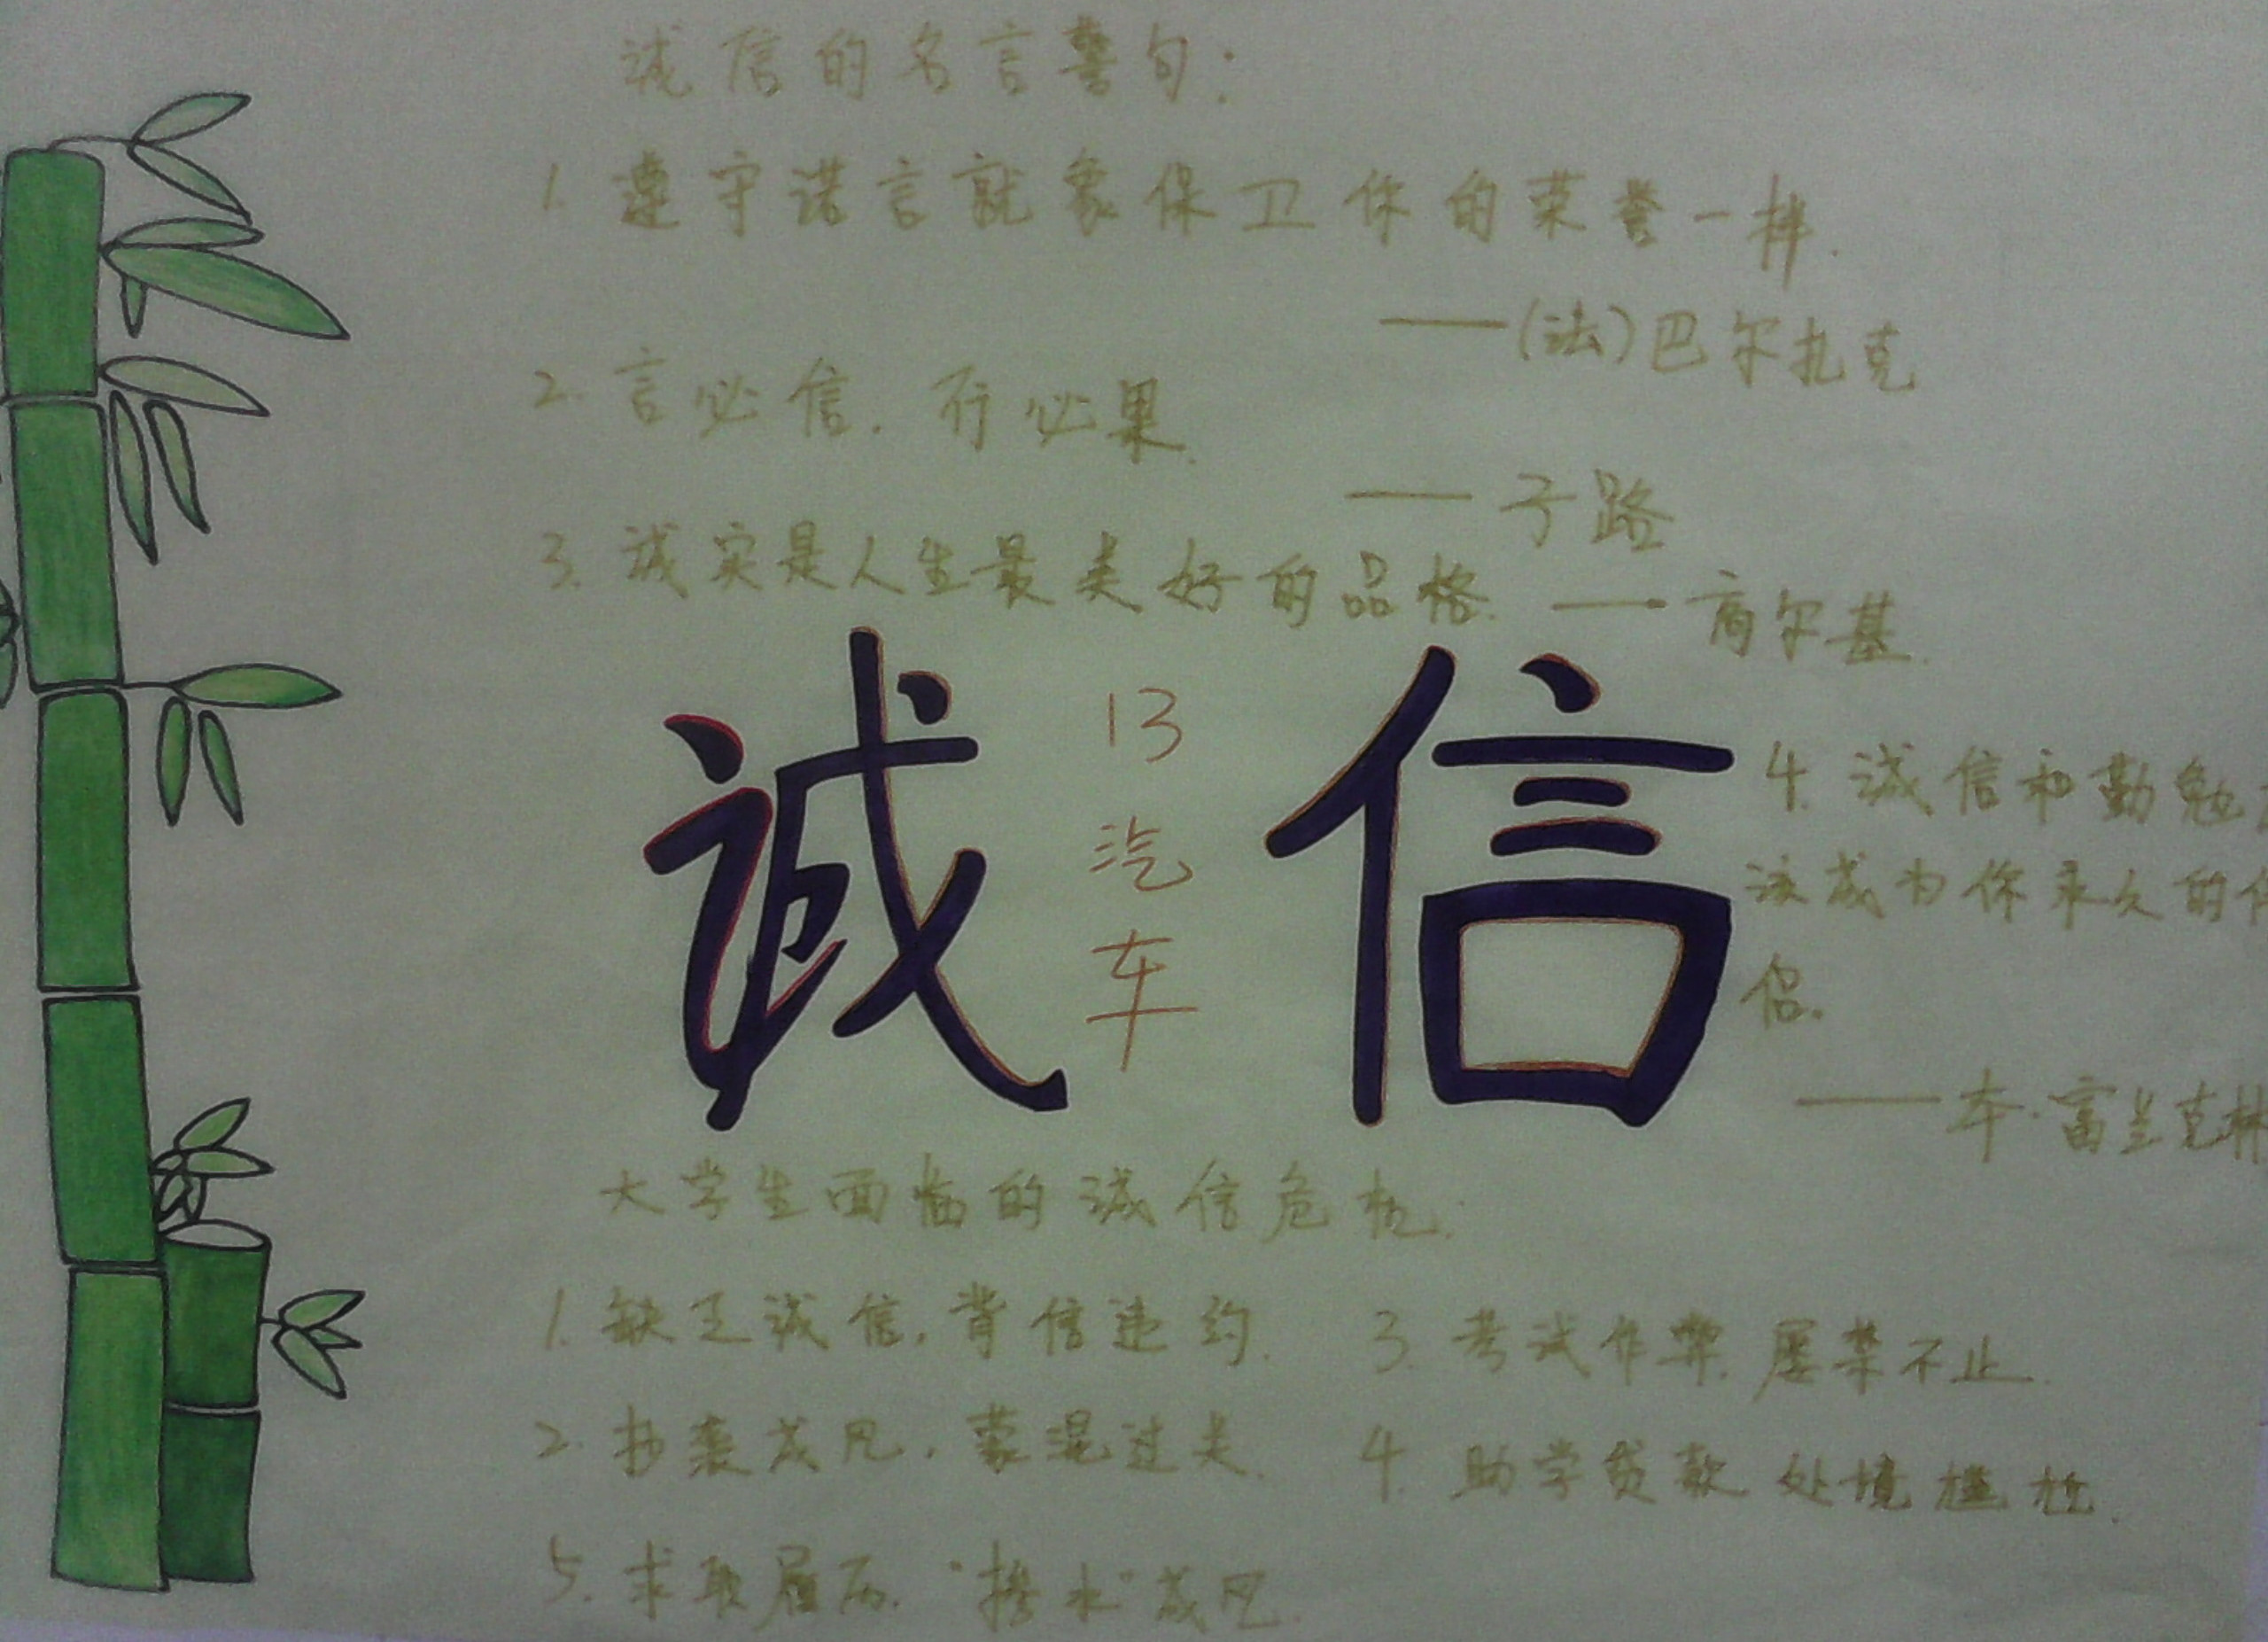 诚信的名言警句:
1. 遵守诺言就象保卫你的荣誉一样.
——(法)巴尔扎克
2. 言必信. 行必果.
——子路
3. 诚实是人生最美好的品格. ——高尔基.
诚信
13
汽
车
4. 诚信和勤勉
该成为你永久的
侣.
——本·富兰克林
大学生面临的诚信危机.
1. 缺乏诚信, 背信违约.
3. 考试作弊. 屡禁不止.
2. 抄袭成风, 蒙混过关.
4. 助学贷款 处境尴尬.
5. 求职履历. "掺水"成风.